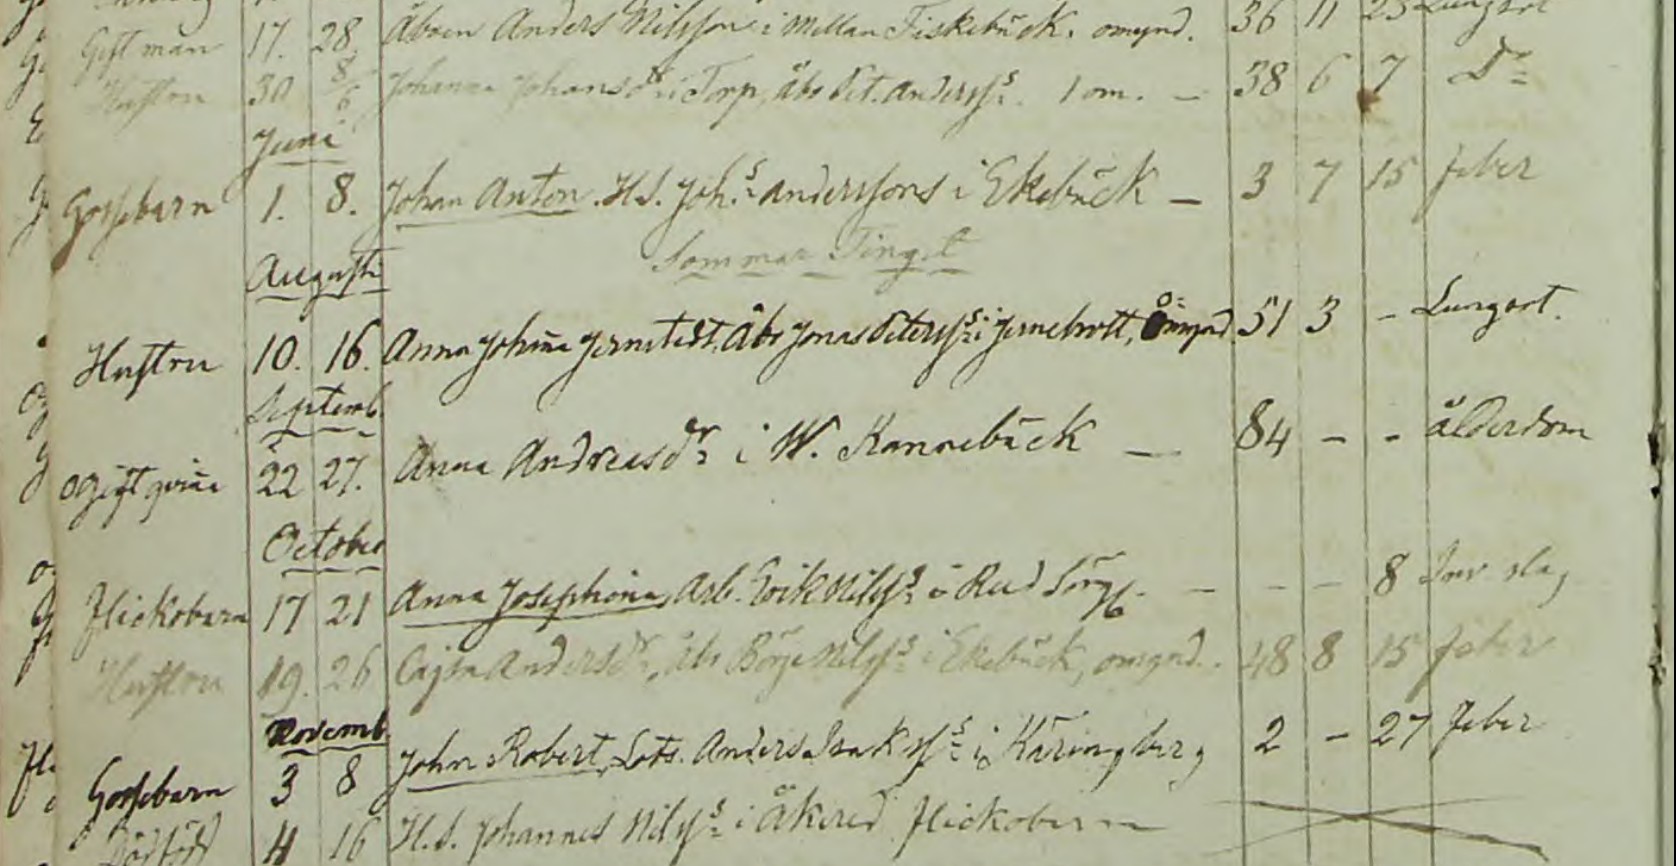 Gift man 17. 28 Åboen Anders Nilsson i Mellan Fiskebäck. omynd. 36 11 23 Lungsot
Hustru 30 8/6 Johanna Johansdr i Torp, åbo Pet. Anderss: 1 om. — 38 6 7 Do
Juni
Gossebarn 1. 8. Johan Anton. H.S. Joh:s Anderssons i Ekebäck — 3 7 15 feber
Sommar Tinget
Augusti
Hustru 10. 16. Anna Johan̄a Jernstedt, Åbo Jonas Peterss: i Jernebrott, Omynd 51 3 - Lungsot.
Septemb.
Ogift qvin̄a 22 27. Anna Andreasdr i W. Kannebäck — 84 - - ålderdom
October
Flickobarn 17 21 Anna Josephina, Arb. Erik Nilss: i Rud - - - 8 slag
Hustru 19. 26 Cajsa Andersdr, åbo Börje Nilss: i Ekebäck, omynd. 48 8 15 feber
Novemb.
Gossebarn 3 8 John Robert, Lots. Anders Isakss: i Käringberg 2 - 27 Feber
Dödfödt 4 16 H.S. Johannes Nilss: i Åkered Flickobarn